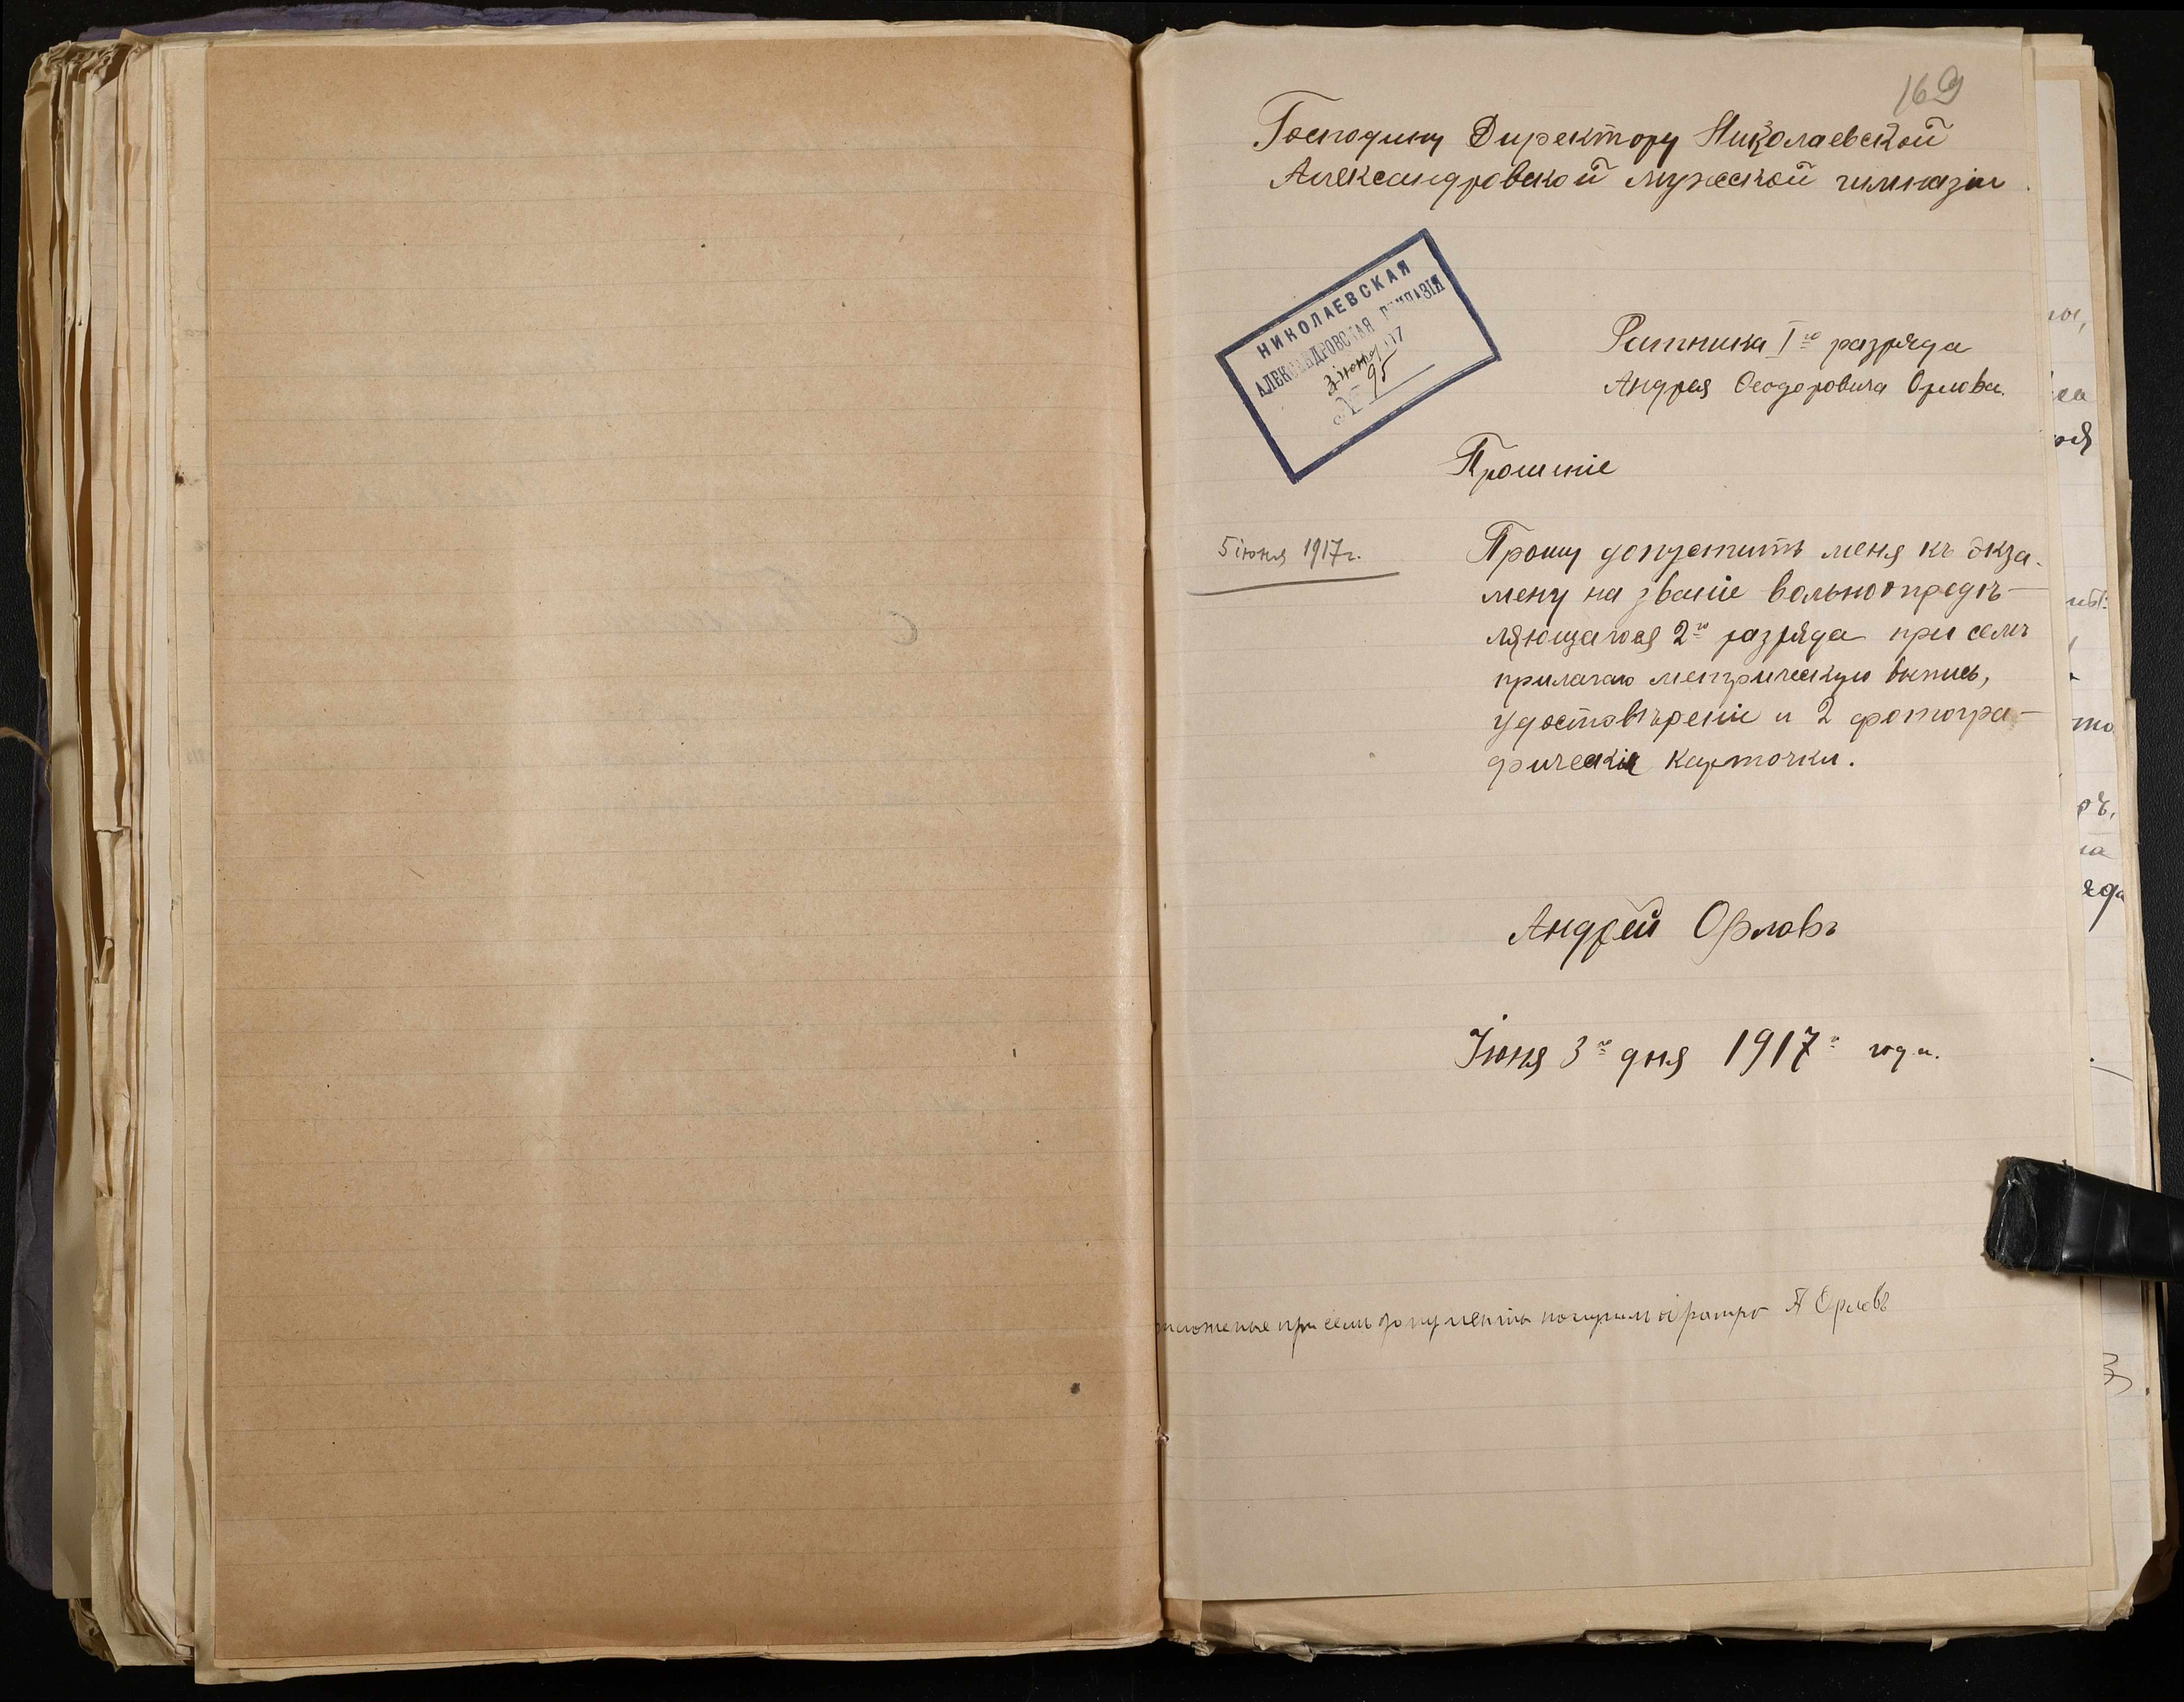 169
Господину Директору Николаевской
Александровской мужеской гимназiи.
НИКОЛАЕВСКАЯ
АЛЕКСАНДРОВСКАЯ ГИМНАЗІЯ
3 iюня 1917
№ 95
Ратника I го разряда
Андрея Ѳеодоровича Орлова.
Прошенiе
5 iюня 1917 г.
Прошу допустить меня къ экза-
мену на званiе вольноопредѣ-
ляющагося 2го разряда при семъ
прилагаю метрическую выпись,
удостовѣренiе и 2 фотогра-
фическiя карточки.
Андрей Орловъ
Iюня 3го дня 1917 года.
при семъ документы получилъ обратно А Орловъ